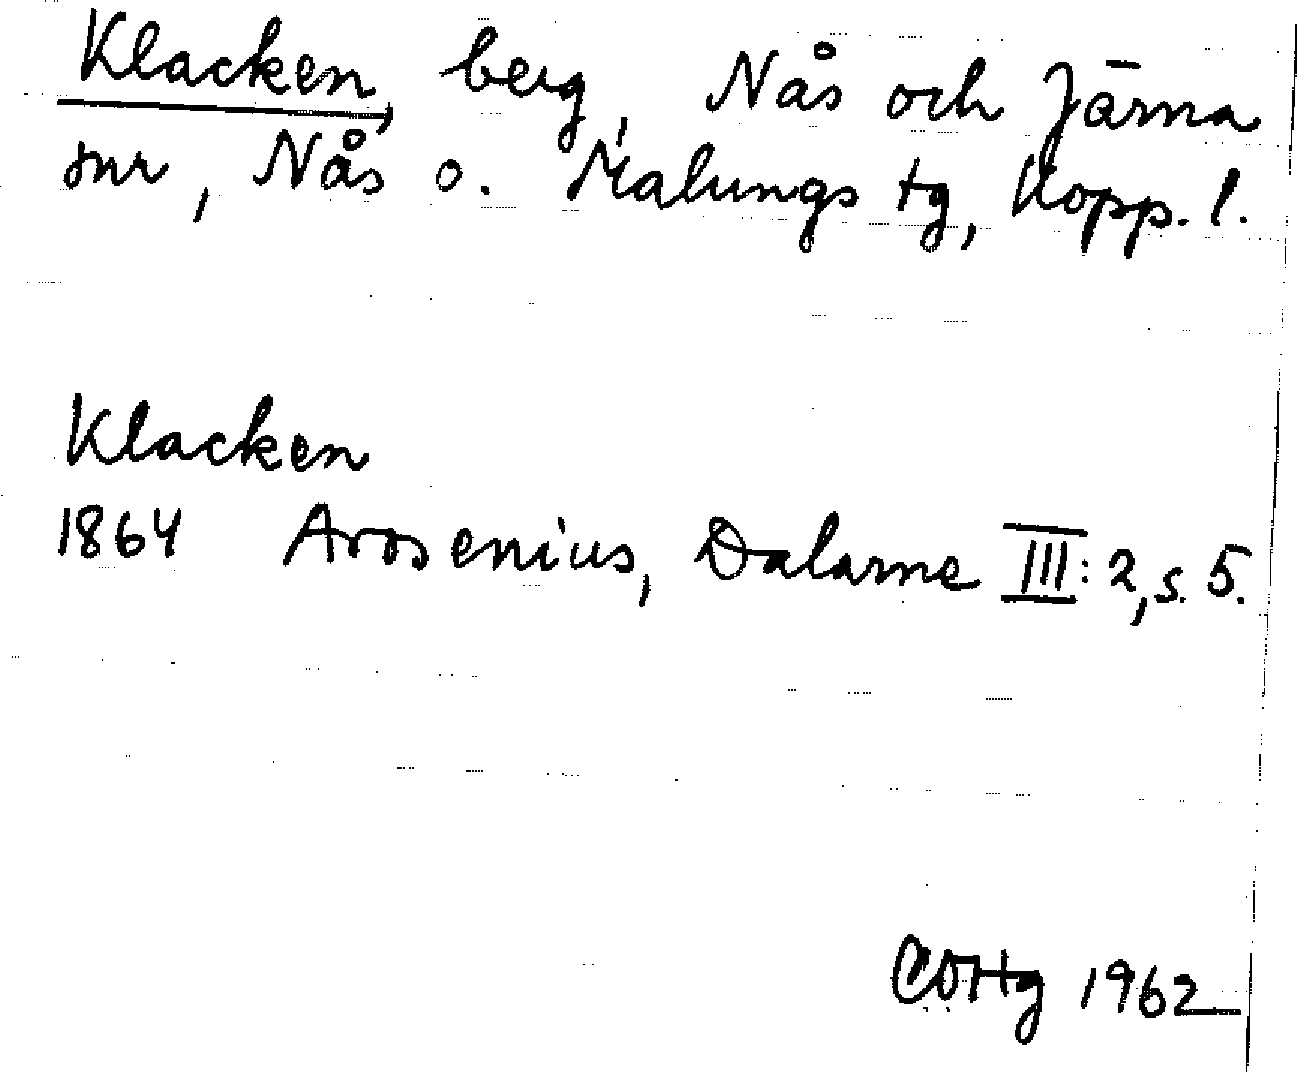 Klacken, berg, Nås och Järna
snr, Nås o. Malungs tg, Kopp. l.
Klacken
1864 Arosenius, Dalarne III: 2, s. 5.
1962